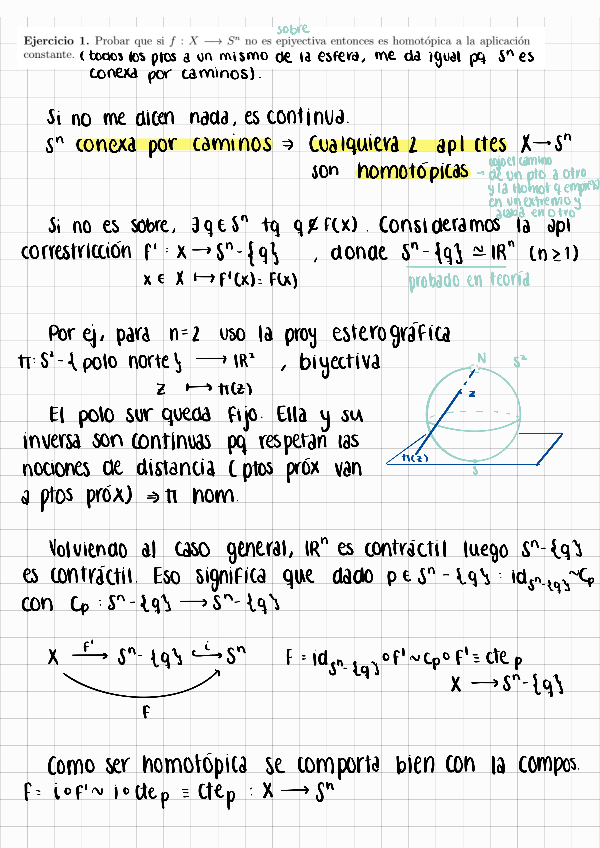 sobre
Ejercicio 1. Probar que si f : X ⟶ Sⁿ no es epiyectiva entonces es homotópica a la aplicación
constante. (todos los ptos a un mismo de la esfera, me da igual pq Sⁿ es
conexa por caminos).
Si no me dicen nada, es continua.
Sⁿ conexa por caminos → Cualquiera 2 apl ctes X → Sⁿ
son homotópicas - cojo el camino
de un pto a otro
y la homot q empieza
en un extremo y
acaba en otro
Si no es sobre, ∃ q ∈ Sⁿ tq q ∉ f(X). Consideramos la apl
correstricción f' : X → Sⁿ-{q} , donde Sⁿ-{q} ≃ ℝⁿ (n ≥ 1)
x ∈ X ↦ f'(x) = f(x) probado en teoría
Por ej, para n=2 uso la proy esterográfica
π: S²-{polo norte} ⟶ ℝ² , biyectiva
z ⟼ π(z)
N S²
z
π(z)
S
El polo sur queda fijo. Ella y su
inversa son continuas pq respetan las
nociones de distancia (ptos próx van
a ptos próx) ⇒ π hom.
Volviendo al caso general, ℝⁿ es contráctil luego Sⁿ-{q}
es contráctil. Eso significa que dado p ∈ Sⁿ-{q} : id_{Sⁿ-{q}} ~ c_p
con c_p : Sⁿ-{q} ⟶ Sⁿ-{q}
X –f'→ Sⁿ-{q} ↪i Sⁿ f = id_{Sⁿ-{q}} ∘ f' ~ c_p ∘ f' ≡ cte_p
X ⟶ Sⁿ-{q}
f
Como ser homotópica se comporta bien con la compos.
f = i ∘ f' ~ i ∘ cte_p ≡ cte_p : X ⟶ Sⁿ